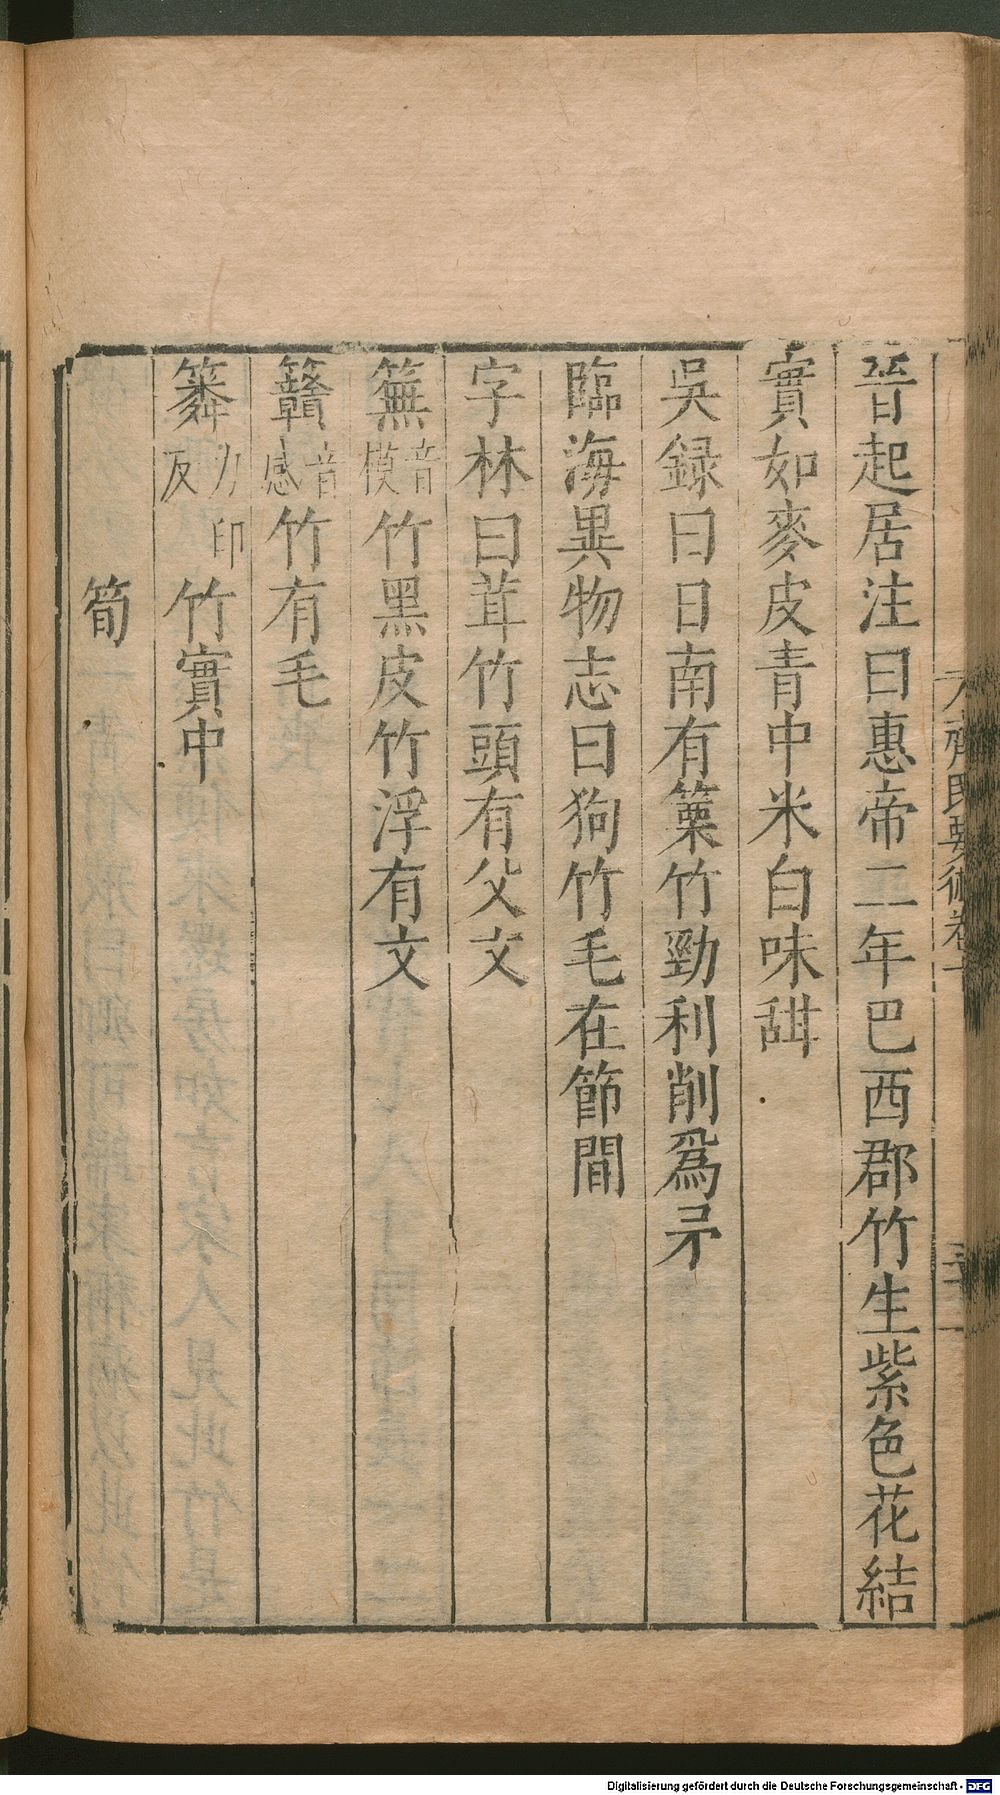 晉起居注曰惠帝二年巴西郡竹生紫色花結
實如麥皮青中米白味甜
吳録曰日南有篥竹勁利削爲矛
臨海異物志曰狗竹毛在節間
字林曰茸竹頭有父文
䉑音模竹黑皮竹浮有文
籫音感竹有毛
䉮力印反竹實中
筍
齊民要術卷十
Digitalisierung gefördert durch die Deutsche Forschungsgemeinschaft - DFG